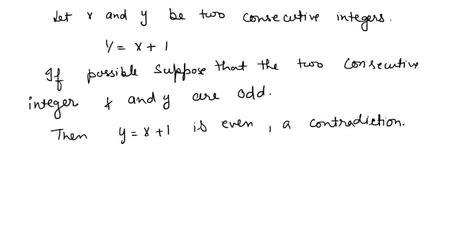 Let x and y be two consecutive integers.
Y = x + 1
If possible suppose that the two consecutive
integer x and y are odd.
Then y = x + 1 is even, a contradiction.